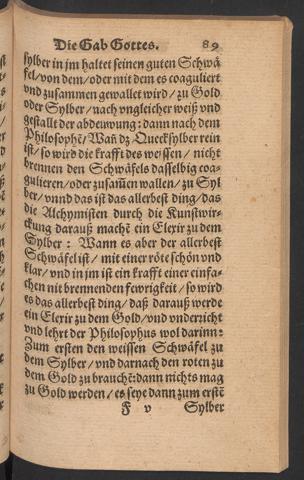 Die Gab Gottes. 89
sylber in jm haltet seinen guten Schwä
fel/von dem/oder mit dem es coaguliert
vnd zusammen gewallet wird/zu Gold
oder Sylber/nach vngleicher weiß vnd
gestallt der abdeuwung: dann nach dem
Philosophē/Wañ dz Quecksylber rein
ist/so wird die krafft des weissen/nicht
brennen den Schwäfels dasselbig coa-
gulieren/oder zusam̃en wallen/zu Syl
ber/vnnd das ist das allerbest ding/das
die Alchymisten durch die Kunstwir-
ckung darauß machē ein Elexir zu dem
Sylber: Wann es aber der allerbest
Schwäfel ist/mit einer röte schön vnd
klar/vnd in jm ist ein krafft einer einfa-
chen nit brennenden fewrigkeit/so wird
es das allerbest ding/daß darauß werde
ein Elexir zu dem Gold/vnd vnderzicht
vnd lehrt der Philosophus wol darinn:
Zum ersten den weissen Schwäfel zu
dem Sylber/vnd darnach den roten zu
dem Gold zu brauchē: dann nichts mag
zu Gold werden/es seye dann zum erstē
F v Sylber